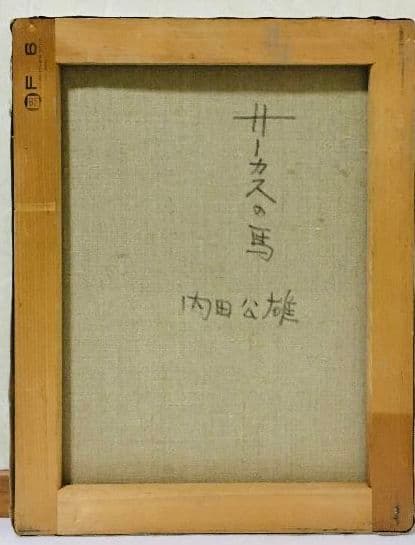 サーカスの馬
内田公雄
F 6